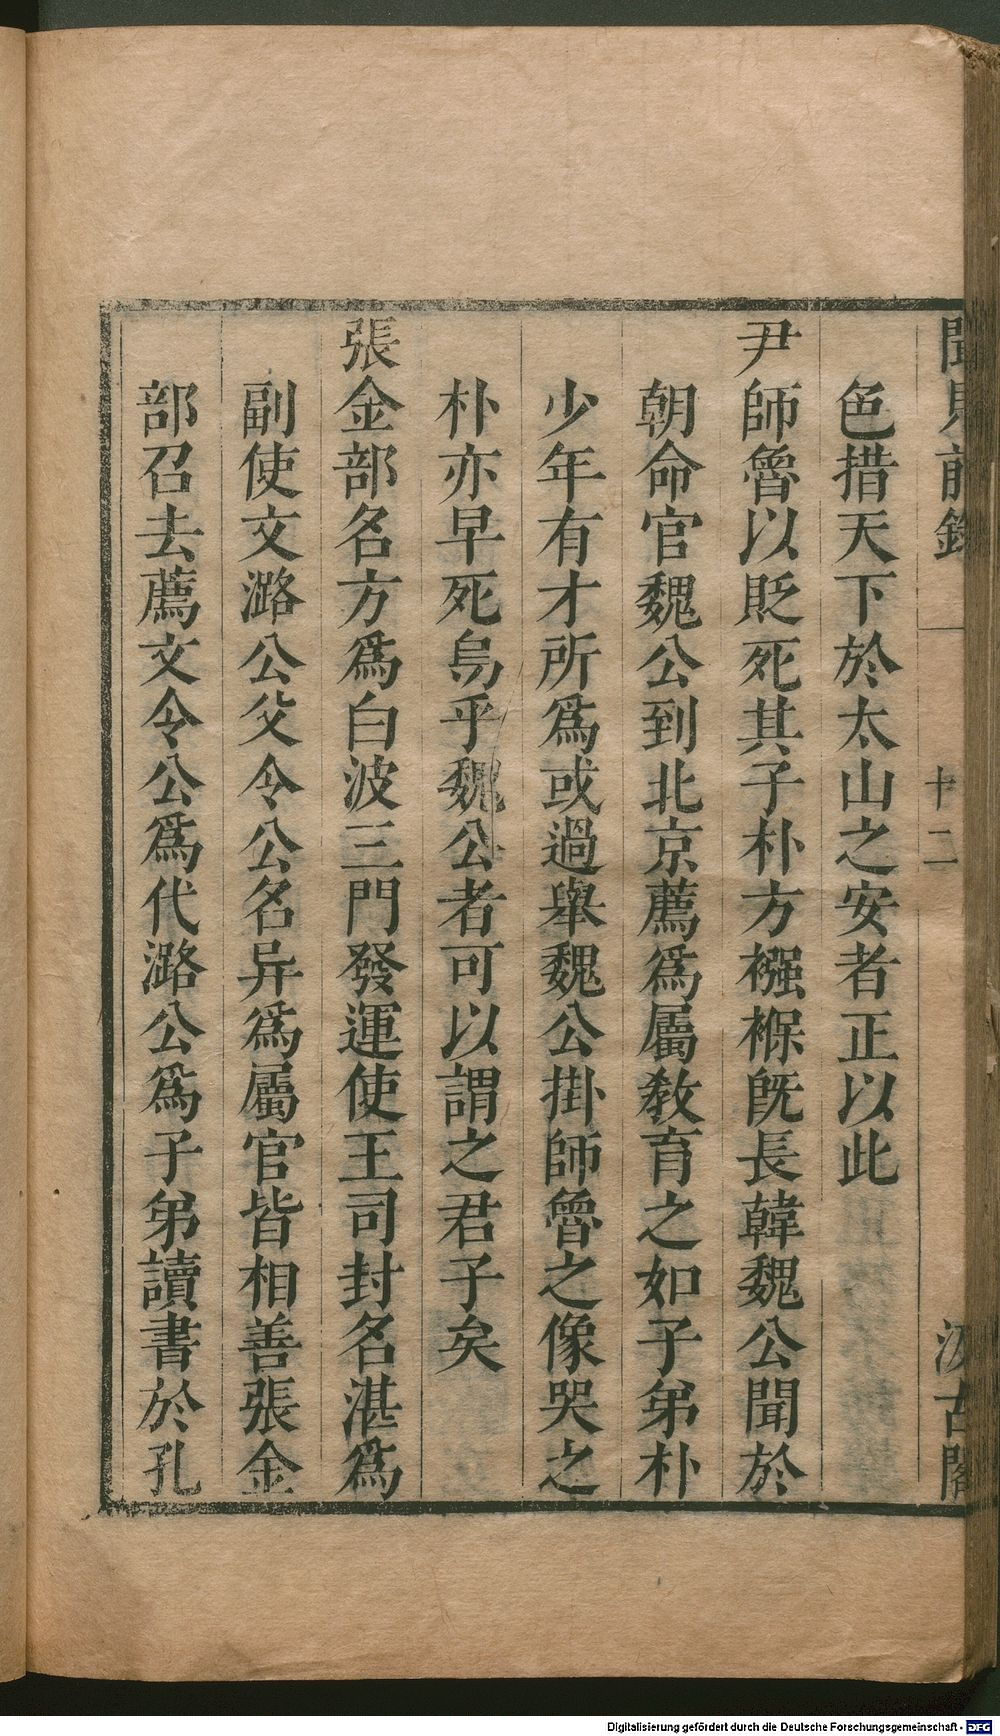 聞見前錄 十二 汲古閣
色措天下於太山之安者正以此
尹師魯以貶死其子朴方襁褓旣長韓魏公聞於
朝命官魏公到北京薦爲屬教育之如子弟朴
少年有才所爲或過舉魏公掛師魯之像哭之
朴亦早死烏乎魏公者可以謂之君子矣
張金部名方爲白波三門發運使王司封名湛爲
副使文潞公父令公名异爲屬官皆相善張金
部召去薦文令公爲代潞公爲子弟讀書於孔
Digitalisierung gefördert durch die Deutsche Forschungsgemeinschaft - DFG